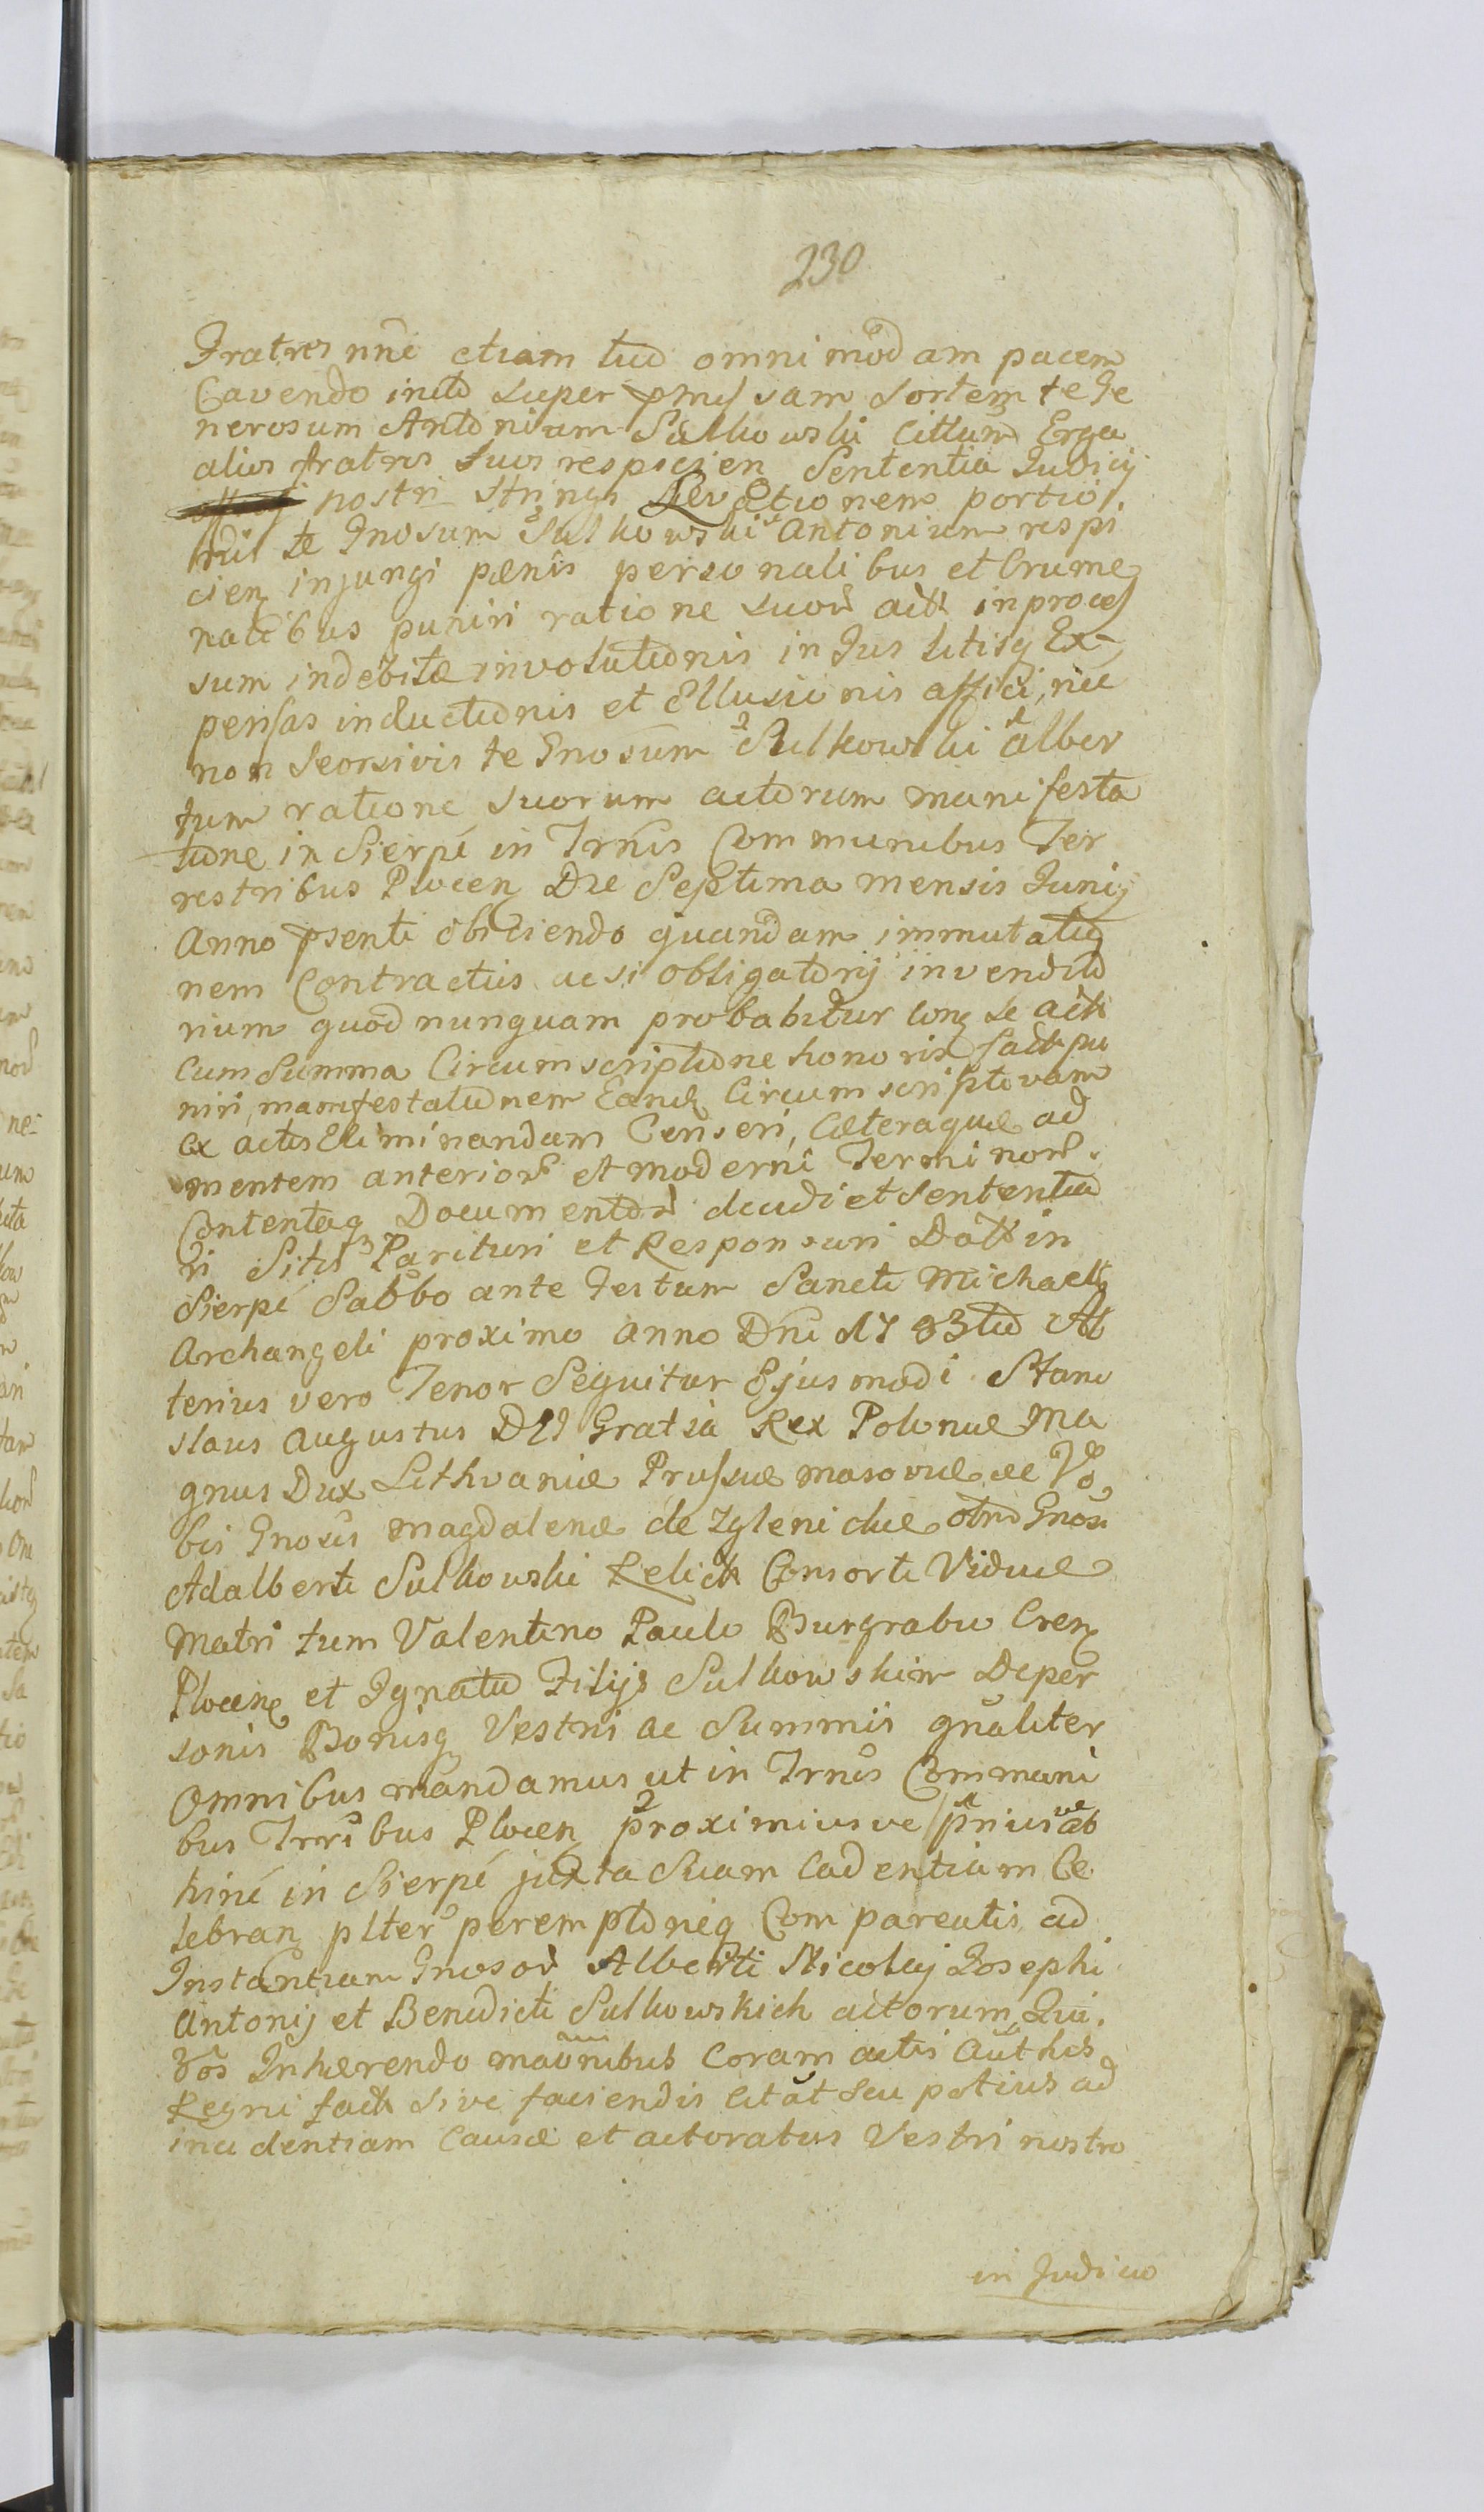 230
Fratres nne etiam tuo omnimodam pacem
Cavendo inito super pmissam sortem te Ge
nerosum Antonium Sulkowski Cittum Erga
alios fratres suos respicien Sententia Judicij
nostri stringi Levationem portio
te Gnosum Sulkowski Antonium respi
cien injungi pœnis personalibus et Crume
nalibus puniri ratione suoru actt in proces
sum indebitæ involutionis in Jus litisq Ex-
pensas inductionis et Ellusionis affici, nec
non seorsivis te Gnosum 2 Sulkowski 1 alber
tum ratione suorum actorum manifesta
tione in Sierpc in Trnis Communibus Ter
restribus Plocen Die Septima mensis Junij
Anno psenti obiiciendo quandam immutatio
nem Contractus ac si obligatorij in vendito
rium quod nunquam probabitur conq se actt
cum summa Circumscriptione honoris factt pu
niri, manifestationem Eandq Circumscriptivam
ex actis Eliminandam Censeri, Cæteraque ad
mentem anterior et moderni Terminor
Contentaq Documentor deudi et sententia
ri Sitis Parituri et Responsuri Datt in
Sierpc Sabbo ante Festum Sancti Michaelis
Archangeli proximo Anno Dni 1783tio Al
terius vero Tenor Sequitur Ejusmodi Stani
slaus Augustus DEI Gratia Rex Poloniæ Ma
gnus Dux Lithvaniæ Prussiæ masoviæ ee Vo
bis Gnosis Magdalenæ de Zglenickie olim Gnosi
Adalberti Sulkowski Relictt Consorti Viduæ
Matri tum Valentino Paulo Burgrabio Cren
Plocen et Ignatio Filijs Sulkowskim De per
sonis Bonisq Vestris ac Summis gnaliter
Omnibus mandamus ut in Trnis Communi
bus Trribus Plocen 2 proximius ve 1 prius ve ab
hinc in Sierpc juxta Suam Cadentiam Ce
lebran plter peremptorieq Compareatis ad
Instantiam Gnosor Alberti Nicolaj Josephi
Antonij et Benedicti Sulkowskich actorum, Qui
Vos Inhærendo maonibus Coram actis Authcis
Regni factt sive faciendis Citat seu potius ad
incidentiam Causæ et actoratus Vestri nostro
in Judicio